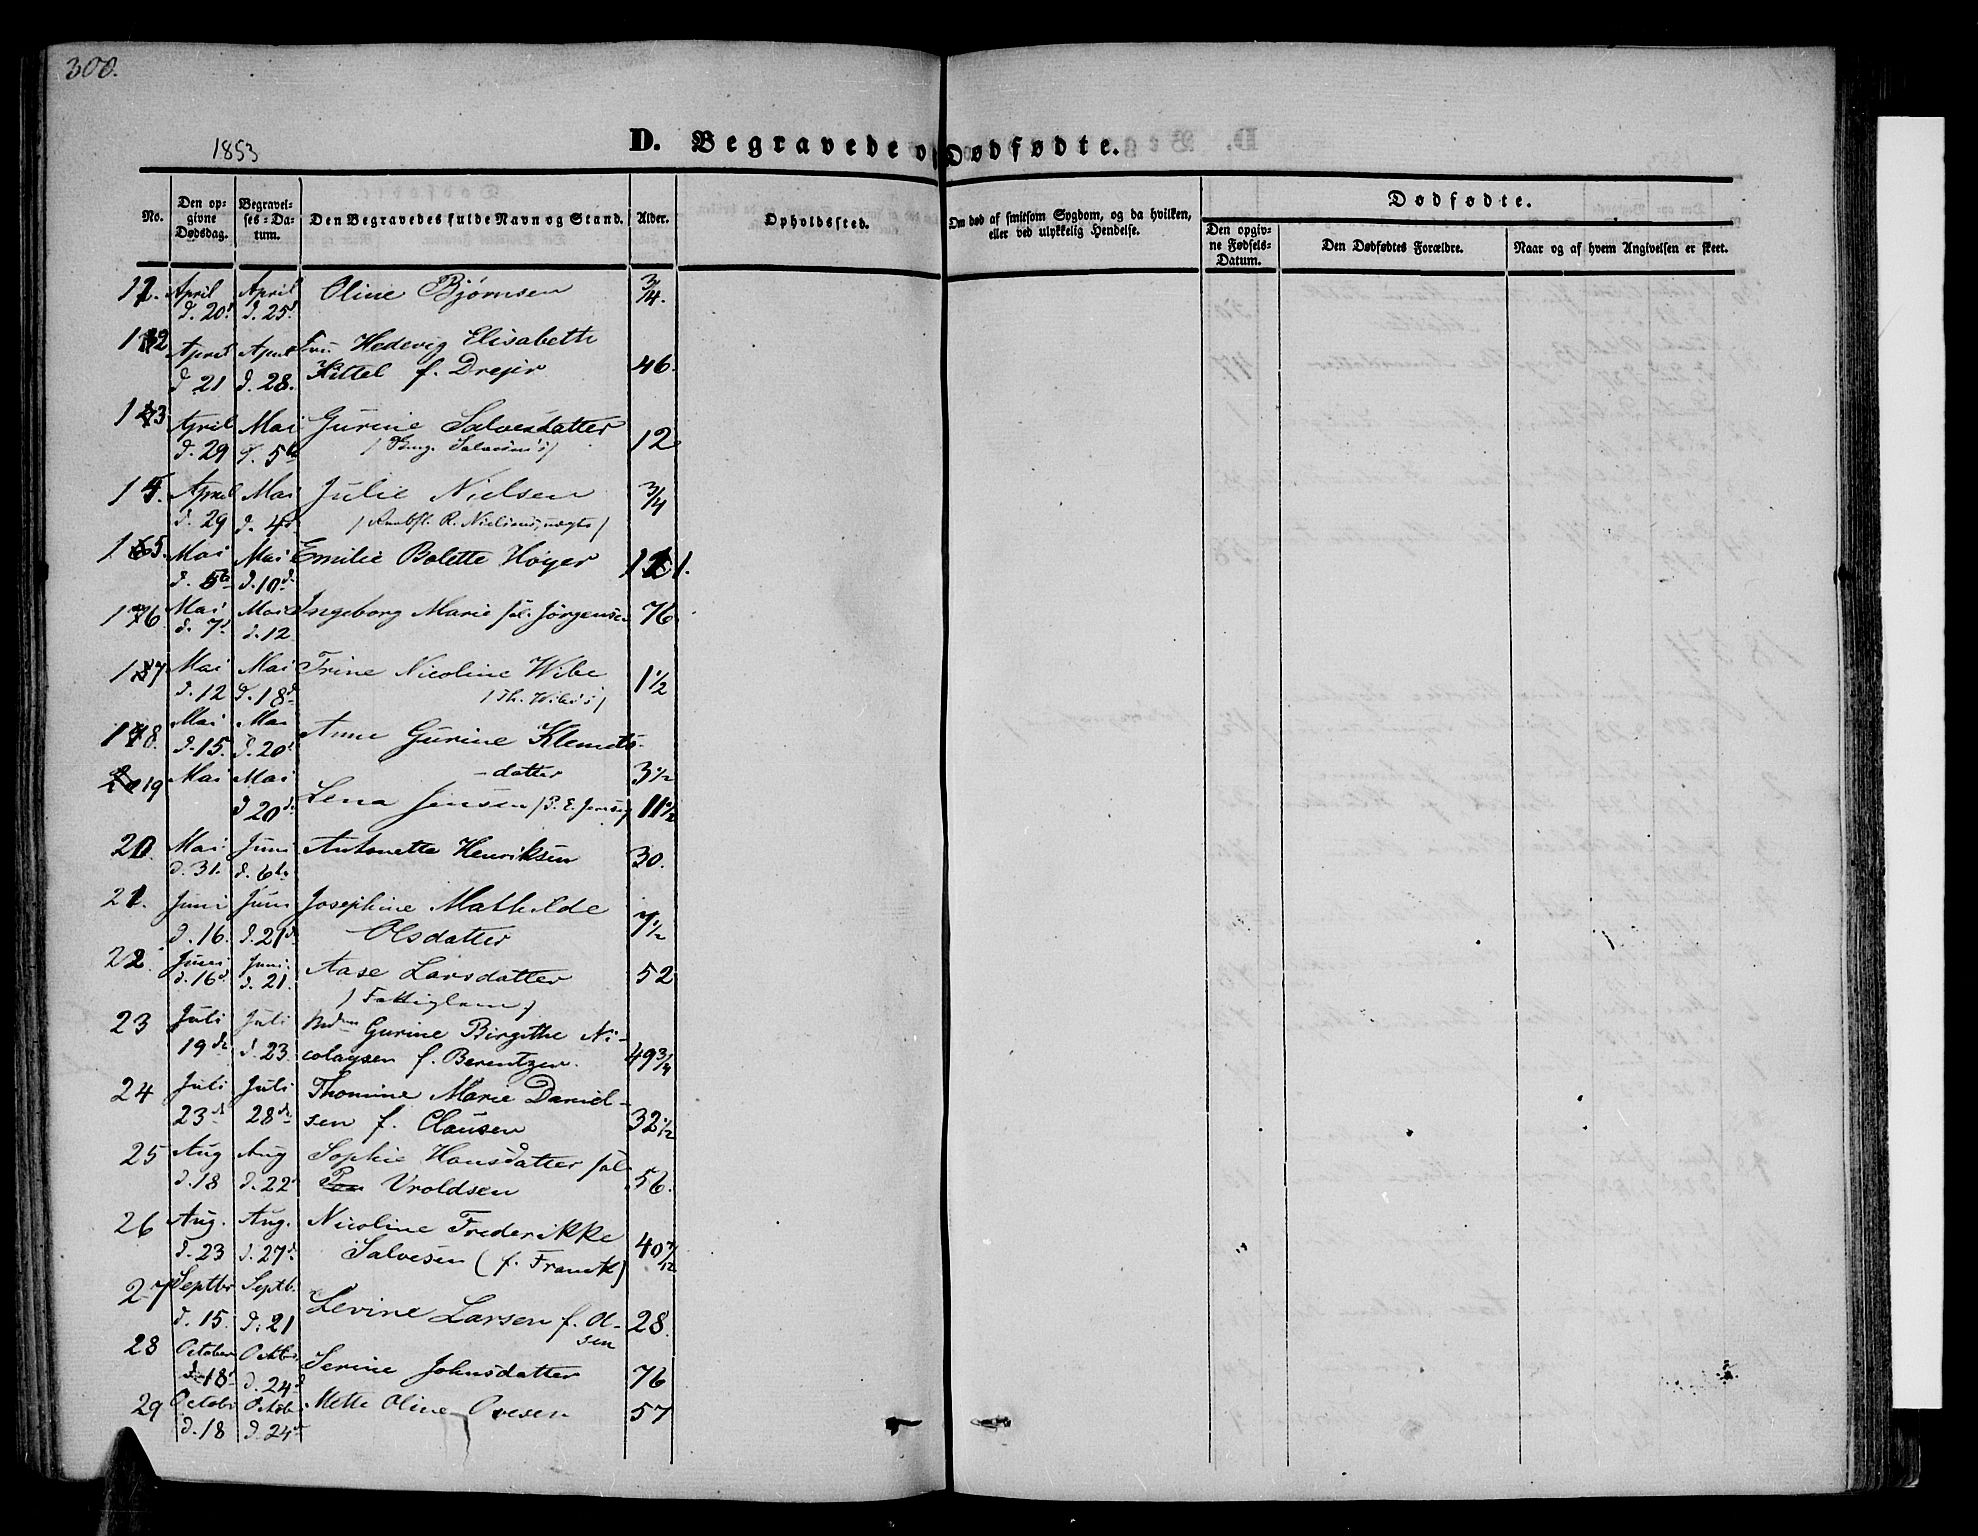 300.
1853
D. Begravede og Dødfødte.
No.
Den opgivne Dødsdag.
Begravelses-Datum.
Den Begravedes fulde Navn og Stand.
Alder.
Opholdssted.
Om død af smitsom Sygdom, og da hvilken, eller ved ulykkelig Hendelse.
Dødfødte.
Den opgivne Fødsels-Datum.
Den Dødfødtes Forældre.
Naar og af hvem Angivelsen er skeet.
11. April d. 20d April d. 25d Oline Bjørnsen 3/4.
12 April d 21 April d. 28. Fru Hedevig Elisabeth
Kittel f. Drejer 46.
13 April d. 29 Mai d. 5te Gurine Salvesdatter 12
14. April d. 29 Mai d. 4d Julie Nielsen 3/4
15. Mai d. 5te Mai d. 10d. Emilie Bolette Høyer 11.
16. Mai d. 7d Mai d. 12 Ingeborg Marie sal. Jörgensen 76.
17 Mai d. 12 Mai d. 18d Trine Nicoline Wibe 1 1/2
/ Th. Wibes /
18. Mai d. 15. Mai d. 20d Anne Gurine Klemets-
datter 3 1/2
19 Mai Mai d 20d. Lena Jensen / P. E. Jensens / 11 1/2
20. Mai d. 31. Juni d. 6te Antonette Henriksen 30.
21. Juni d. 16. Juni d. 21d Josephine Mathilde
Olsdatter 7 1/2
22. Juni d. 16d Juni. d. 21. Aase Larsdatter 52
/ Fattiglem /
23 Juli 19de Juli d. 23 Mdm Gurine Birgithe Ni-
colaysen f. Berentzen. 49 3/4
24 Juli 23d Juli 28de Thomine Marie Daniel-
sen f. Clausen 32 1/2
25 Aug d. 18 Aug d. 22 Sophie Hansdatter sal
Vroldsen 56.
26 Aug. d. 23 Aug. d. 27d. Nicoline Frederikke
Salvesen (f. Franck) 40 7/12
27 Septbr d. 15. Septb. d. 21 Levine Larsen f. Ol-
sen 28.
28 October d. 18d Octbr. d. 24d Serine Johnsdatter 76
29 Octobr d. 18 Octobr d. 24d Mette Oline Ovesen 57
1854